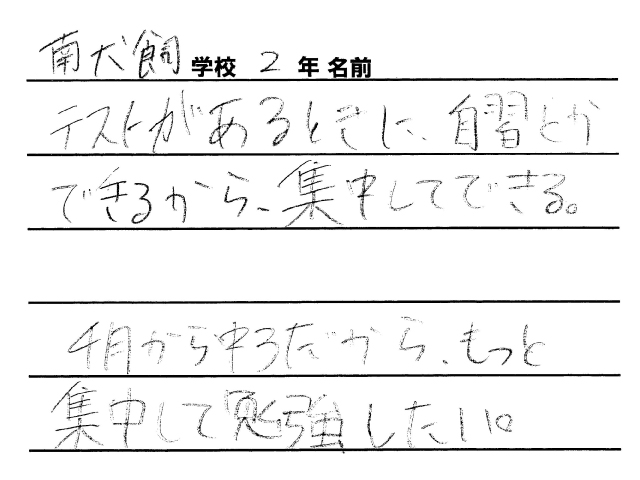 南犬飼学校 2 年 名前
テストがあるときに、自習とか
できるから、集中してできる。
4月から中3だから、もっと
集中して勉強したい。